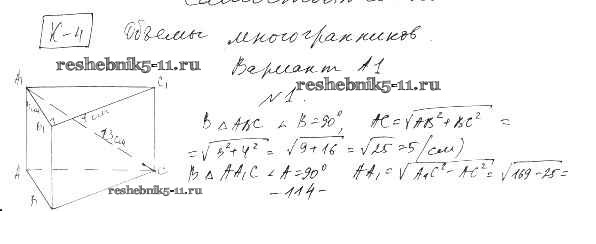 К-4 Объемы многогранников.
reshebnik5-11.ru
Вариант А1
reshebnik5-11.ru
N1.
A1 C1
B1 4 см
13 см
A C
B
В △ABC ∠B=90°, AC=√AB²+BC² =
=√3²+4² = √9+16 = √25=5(см)
В △AA1C ∠A=90° AA1=√A1C²-AC²=√169-25=
reshebnik5-11.ru
-114-